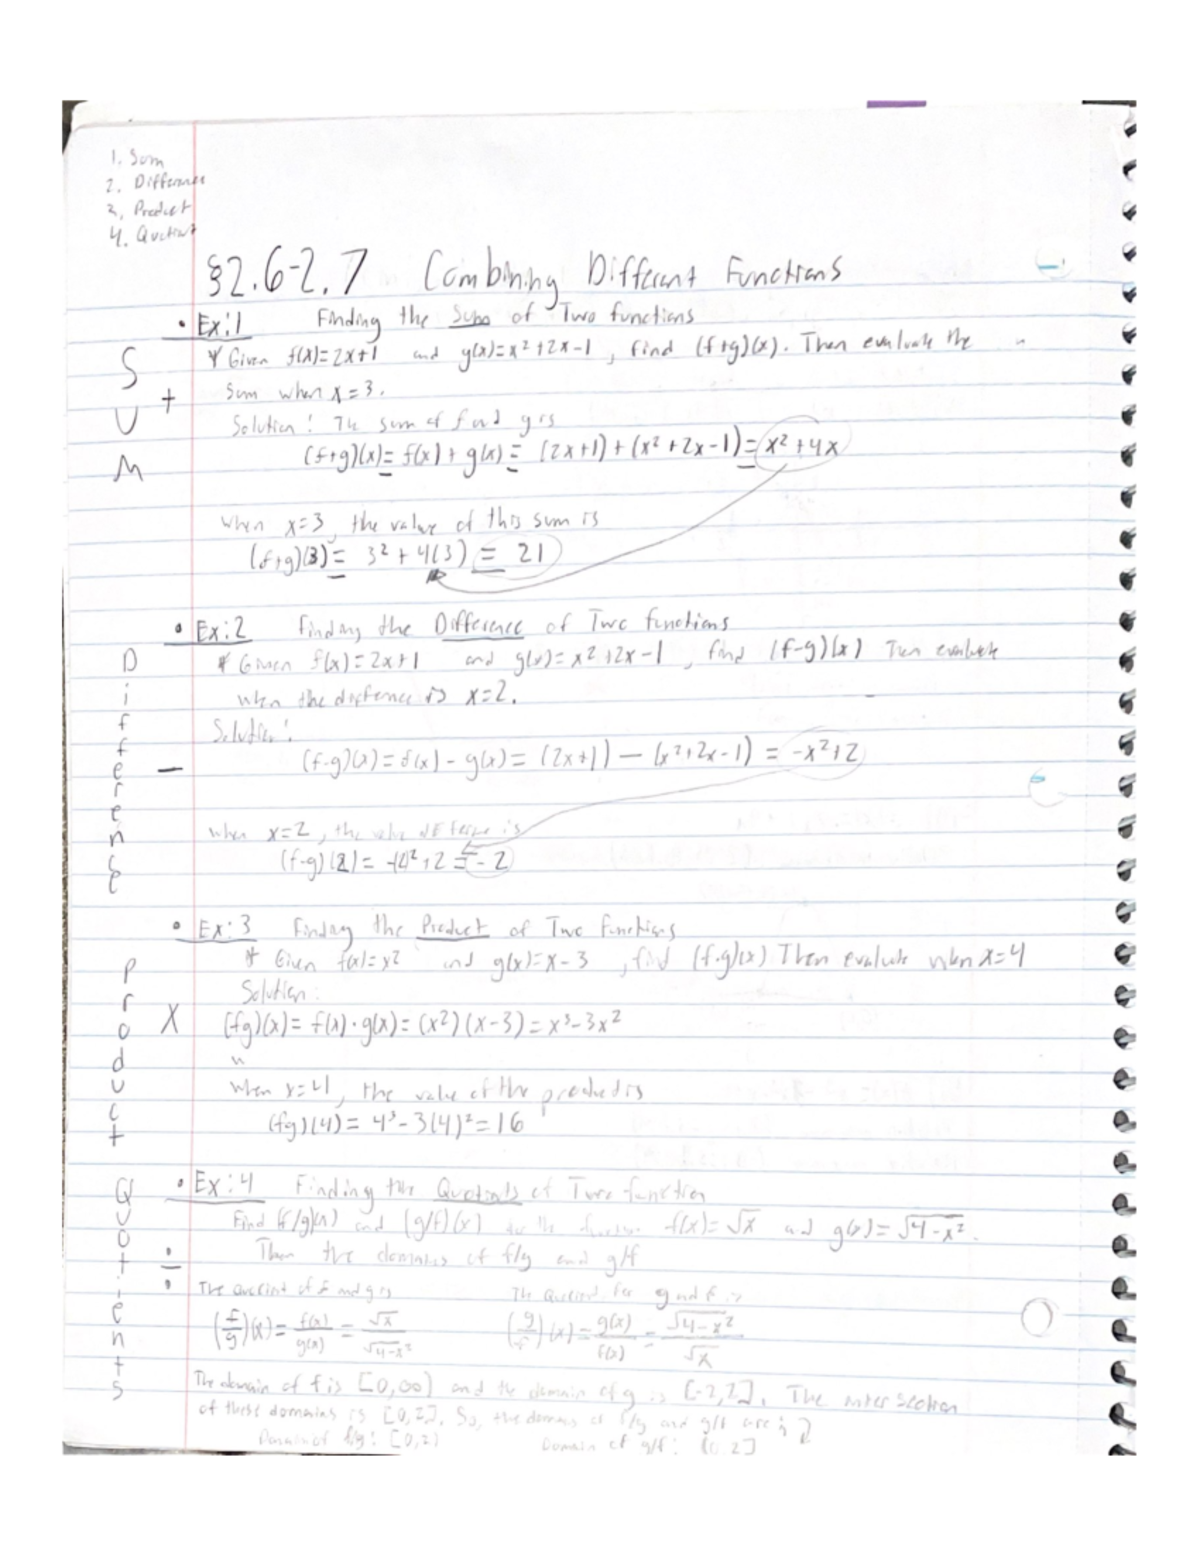 1. Sum
2. Difference
3. Product
4. Quotient
§2.6-2.7 Combining Different Functions
• Ex:1 Finding the Sum of Two functions
* Given f(x)=2x+1 and g(x)=x²+2x-1, find (f+g)(x). Then evaluate the
Sum when x=3.
Solution: The sum of f and g is
(f+g)(x)= f(x)+g(x) = (2x+1)+(x²+2x-1)= x²+4x
SUM +
when x=3, the value of this sum is
(f+g)(3)= 3²+4(3) = 21
• Ex:2 Finding the Difference of Two functions
* Given f(x)=2x+1 and g(x)=x²+2x-1, find (f-g)(x) Then evaluate
when the difference is x=2.
Solution:
(f-g)(x)=f(x)-g(x)= (2x+1) - (x²+2x-1) = -x²+2
Difference -
when x=2, the is
(f-g)(2)= -(2)²+2 = -2
• Ex:3 Finding the Product of Two Functions
* Given f(x)=x² and g(x)=x-3, find (f.g)(x) Then evaluate when x=4
Solution:
(fg)(x)= f(x)·g(x)= (x²)(x-3)=x³-3x²
Product X
when x=4, the value of the product is
(fg)(4)= 4³-3(4)²=16
• Ex:4 Finding the of Two function
Find (f/g)(x) and (g/f)(x) for the function f(x)=√x and g(x)=√4-x².
Then the domains of f/g and g/f
Quotients ÷
The quotient of f and g is The Quotient for g and f is
(f/g)(x)= f(x)/g(x) = √x/√4-x² (g/f)(x)= g(x)/f(x) = √4-x²/√x
The domain of f is [0,∞) and the domain of g is [-2,2]. The intersection
of these domains is [0,2]. So, the domains of f/g and g/f are:
Domain of f/g: [0,2) Domain of g/f: (0,2]